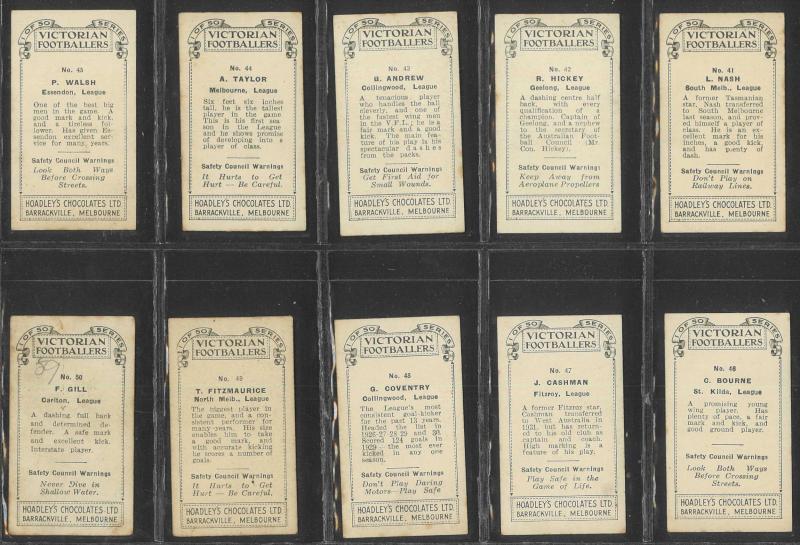 1 OF 50 SERIES
VICTORIAN
FOOTBALLERS
No. 45
P. WALSH
Essendon, League
One of the best big
men in the game. A
good mark and kick,
and a tireless fol-
lower. Has given Es-
sendon excellent ser-
vice for many, years.
Safety Council Warnings
Look Both Ways
Before Crossing
Streets.
HOADLEY'S CHOCOLATES LTD.
BARRACKVILLE, MELBOURNE
1 OF 50 SERIES
VICTORIAN
FOOTBALLERS
No. 44
A. TAYLOR
Melbourne, League
Six feet six inches
tall, he is the tallest
player in the game
This is his first sea-
son in the League
and he shows promise
of deroloping into a
player of class.
Safety Council Warnings
It Hurts to Get
Hurt — Be Careful.
HOADLEY'S CHOCOLATES LTD.
BARRACKVILLE, MELBOURNE
1 OF 50 SERIES
VICTORIAN
FOOTBALLERS
No. 43
B. ANDREW
Collingwood, League
A tenacious player
who handles the ball
cleverly, and one of
the fastest wing men
in the V.F.L.; he is a
fair mark and a good
kick. The main fea-
ture of his play is his
spectacular dashes
from the packs.
Safety Council Warnings
Get First Aid for
Small Wounds.
HOADLEY'S CHOCOLATES LTD.
BARRACKVILLE, MELBOURNE
1 OF 50 SERIES
VICTORIAN
FOOTBALLERS
No. 42
R. HICKEY
Geelong, League
A dashing centre half
back, with every
qualification of a
champion. Captain of
Geelong, and a nephew
to the secretary of
the Australian Foot-
ball Council (Mr.
Con. Hickey).
Safety Council Warnings
Keep Away from
Aeroplane Propellers
HOADLEY'S CHOCOLATES LTD.
BARRACKVILLE, MELBOURNE
1 OF 50 SERIES
VICTORIAN
FOOTBALLERS
No. 41
L. NASH
South Melb., League
A former Tasmanian
star, Nash transferred
to South Melbourne
last season, and prov-
ed himself a player of
class. He is an ex-
cellent mark for his
inches, a good kick,
and has plenty of
dash.
Safety Council Warnings
Don't Play on
Railway Lines.
HOADLEY'S CHOCOLATES LTD.
BARRACKVILLE, MELBOURNE
1 OF 50 SERIES
VICTORIAN
FOOTBALLERS
No. 50
F. GILL
Carlton, League
A dashing full back
and determined de-
fender. A safe mark
and excellent kick.
Interstate player.
Safety Council Warnings
Never Dive in
Shallow Water.
HOADLEY'S CHOCOLATES LTD
BARRACKVILLE, MELBOURNE
1 OF 50 SERIES
VICTORIAN
FOOTBALLERS
No. 49
T. FITZMAURICE
North Melb., League
The biggest player in
the game, and a con-
sistent performer for
many years. His size
enables him to take
a good mark, and
with accurate kicking
he scores a number of
goals.
Safety Council Warnings
It Hurts to Get
Hurt — Be Careful.
HOADLEY'S CHOCOLATES LTD.
BARRACKVILLE, MELBOURNE
1 OF 50 SERIES
VICTORIAN
FOOTBALLERS
No. 48
G. COVENTRY
Collingwood, League
The League's most
consistent goal-kicker
for the past 13 years.
Headed the list in
1926-27-28 29 and 30.
Scored 124 goals in
1929—the most ever
kicked in any one
season.
Safety Council Warnings
Don't Play Daring
Motors—Play Safe
HOADLEY'S CHOCOLATES LTD.
BARRACKVILLE, MELBOURNE
1 OF 50 SERIES
VICTORIAN
FOOTBALLERS
No. 47
J. CASHMAN
Fitzroy, League
A former Fitzroy star,
Cashman transferred
to West Australia in
1931, but has return-
ed to his old club as
captain and coach.
High marking is a
feature of his play.
Safety Council Warnings
Play Safe in the
Game of Life.
HOADLEY'S CHOCOLATES LTD.
BARRACKVILLE, MELBOURNE
1 OF 50 SERIES
VICTORIAN
FOOTBALLERS
No. 46
C. BOURNE
St. Kilda, League
A promising young
wing player. Has
plenty of pace, a fair
mark and kick, and
good ground player.
Safety Council Warnings
Look Both Ways
Before Crossing
Streets.
HOADLEY'S CHOCOLATES LTD.
BARRACKVILLE, MELBOURNE